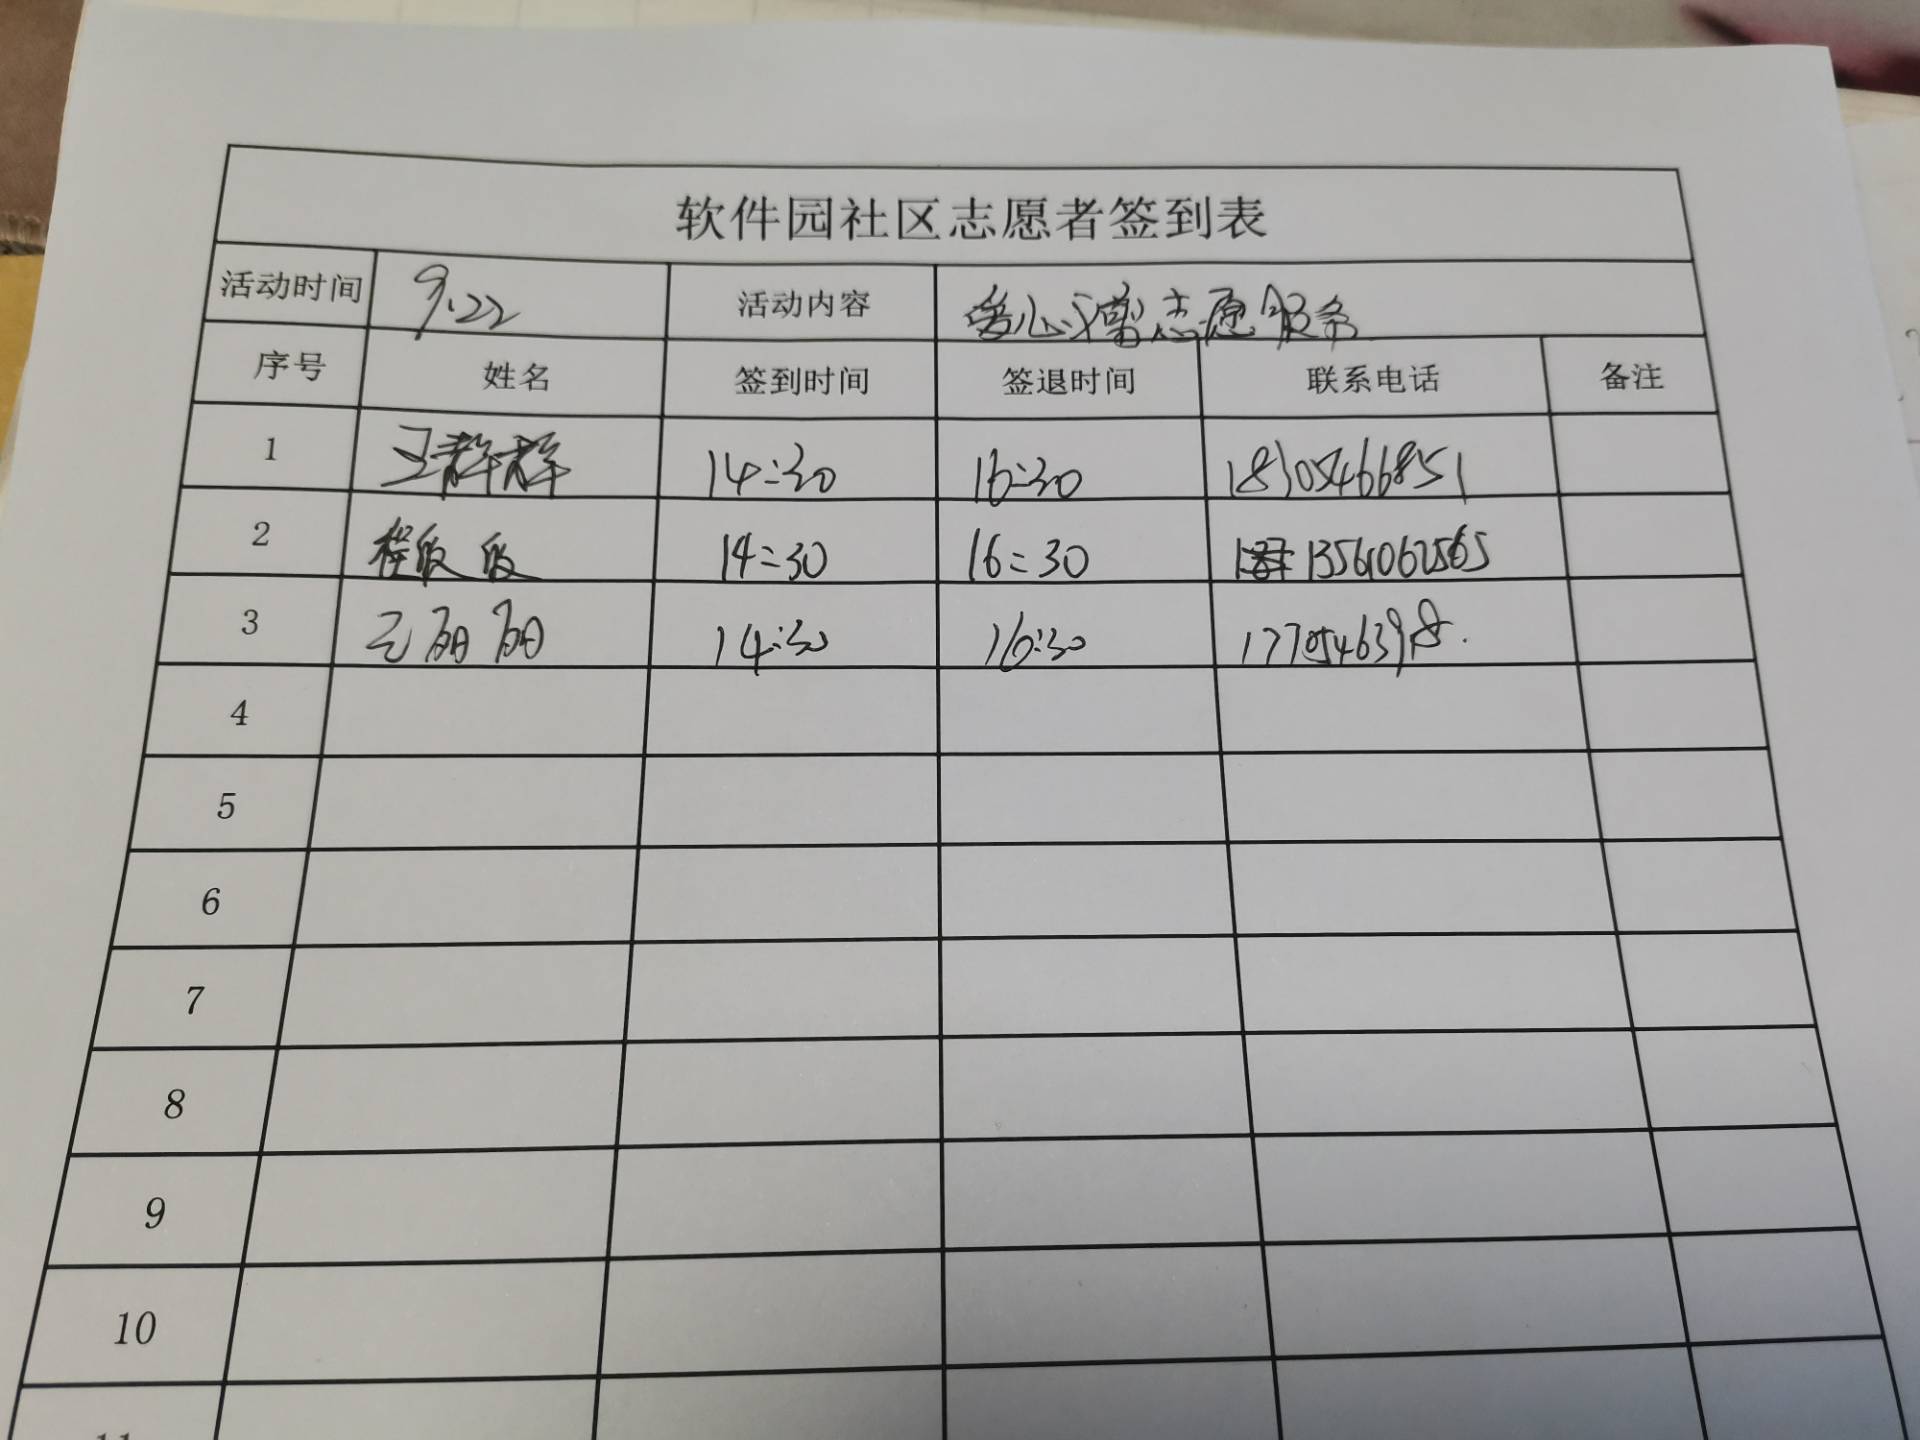 软件园社区志愿者签到表
活动时间 9.22 活动内容 爱心义剪志愿服务
序号 姓名 签到时间 签退时间 联系电话 备注
1 王群群 14:30 16:30 18305466851
2 14:30 16:30 13561062565
3 王丽丽 14:30 16:30
4
5
6
7
8
9
10
11